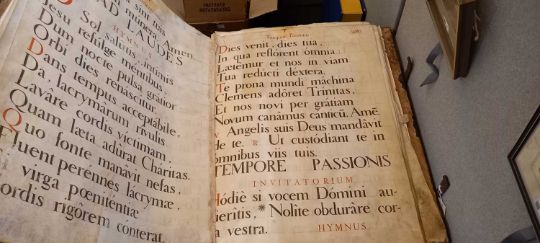 sint ista
AD LAUDES
Sol salutis, intimis
Jesu refulge mentibus,
Dum nocte pulsa gratior
Orbi dies renascitur.
Dans tempus acceptabile,
Da, lacrymarum rivulis
Lavâre cordis victimam,
Quam læta adûrat Charitas.
Quo fonte manavit nefas,
Fluent perennes lacrymæ,
virga pœnitentiæ
ordis rigôrem conterat.
Dies venit, dies tua,
In qua reflôrent omnia:
Lætemur et nos in viam
Tua reducti dextera.
Te prona mundi māchina
Clemens adôret Trinitas,
Et nos novi per grátiam
Novum canâmus canticū. Amē.
℣. Angelis suis Deus mandâvit
de te. ℟. Ut custódiant te in
omnibus viis tuis.
TEMPORE PASSIONIS
INVITATORIUM
Hódie si vocem Dómini au-
ieritis, * Nolite obdurâre cor-
a vestra. HYMNUS